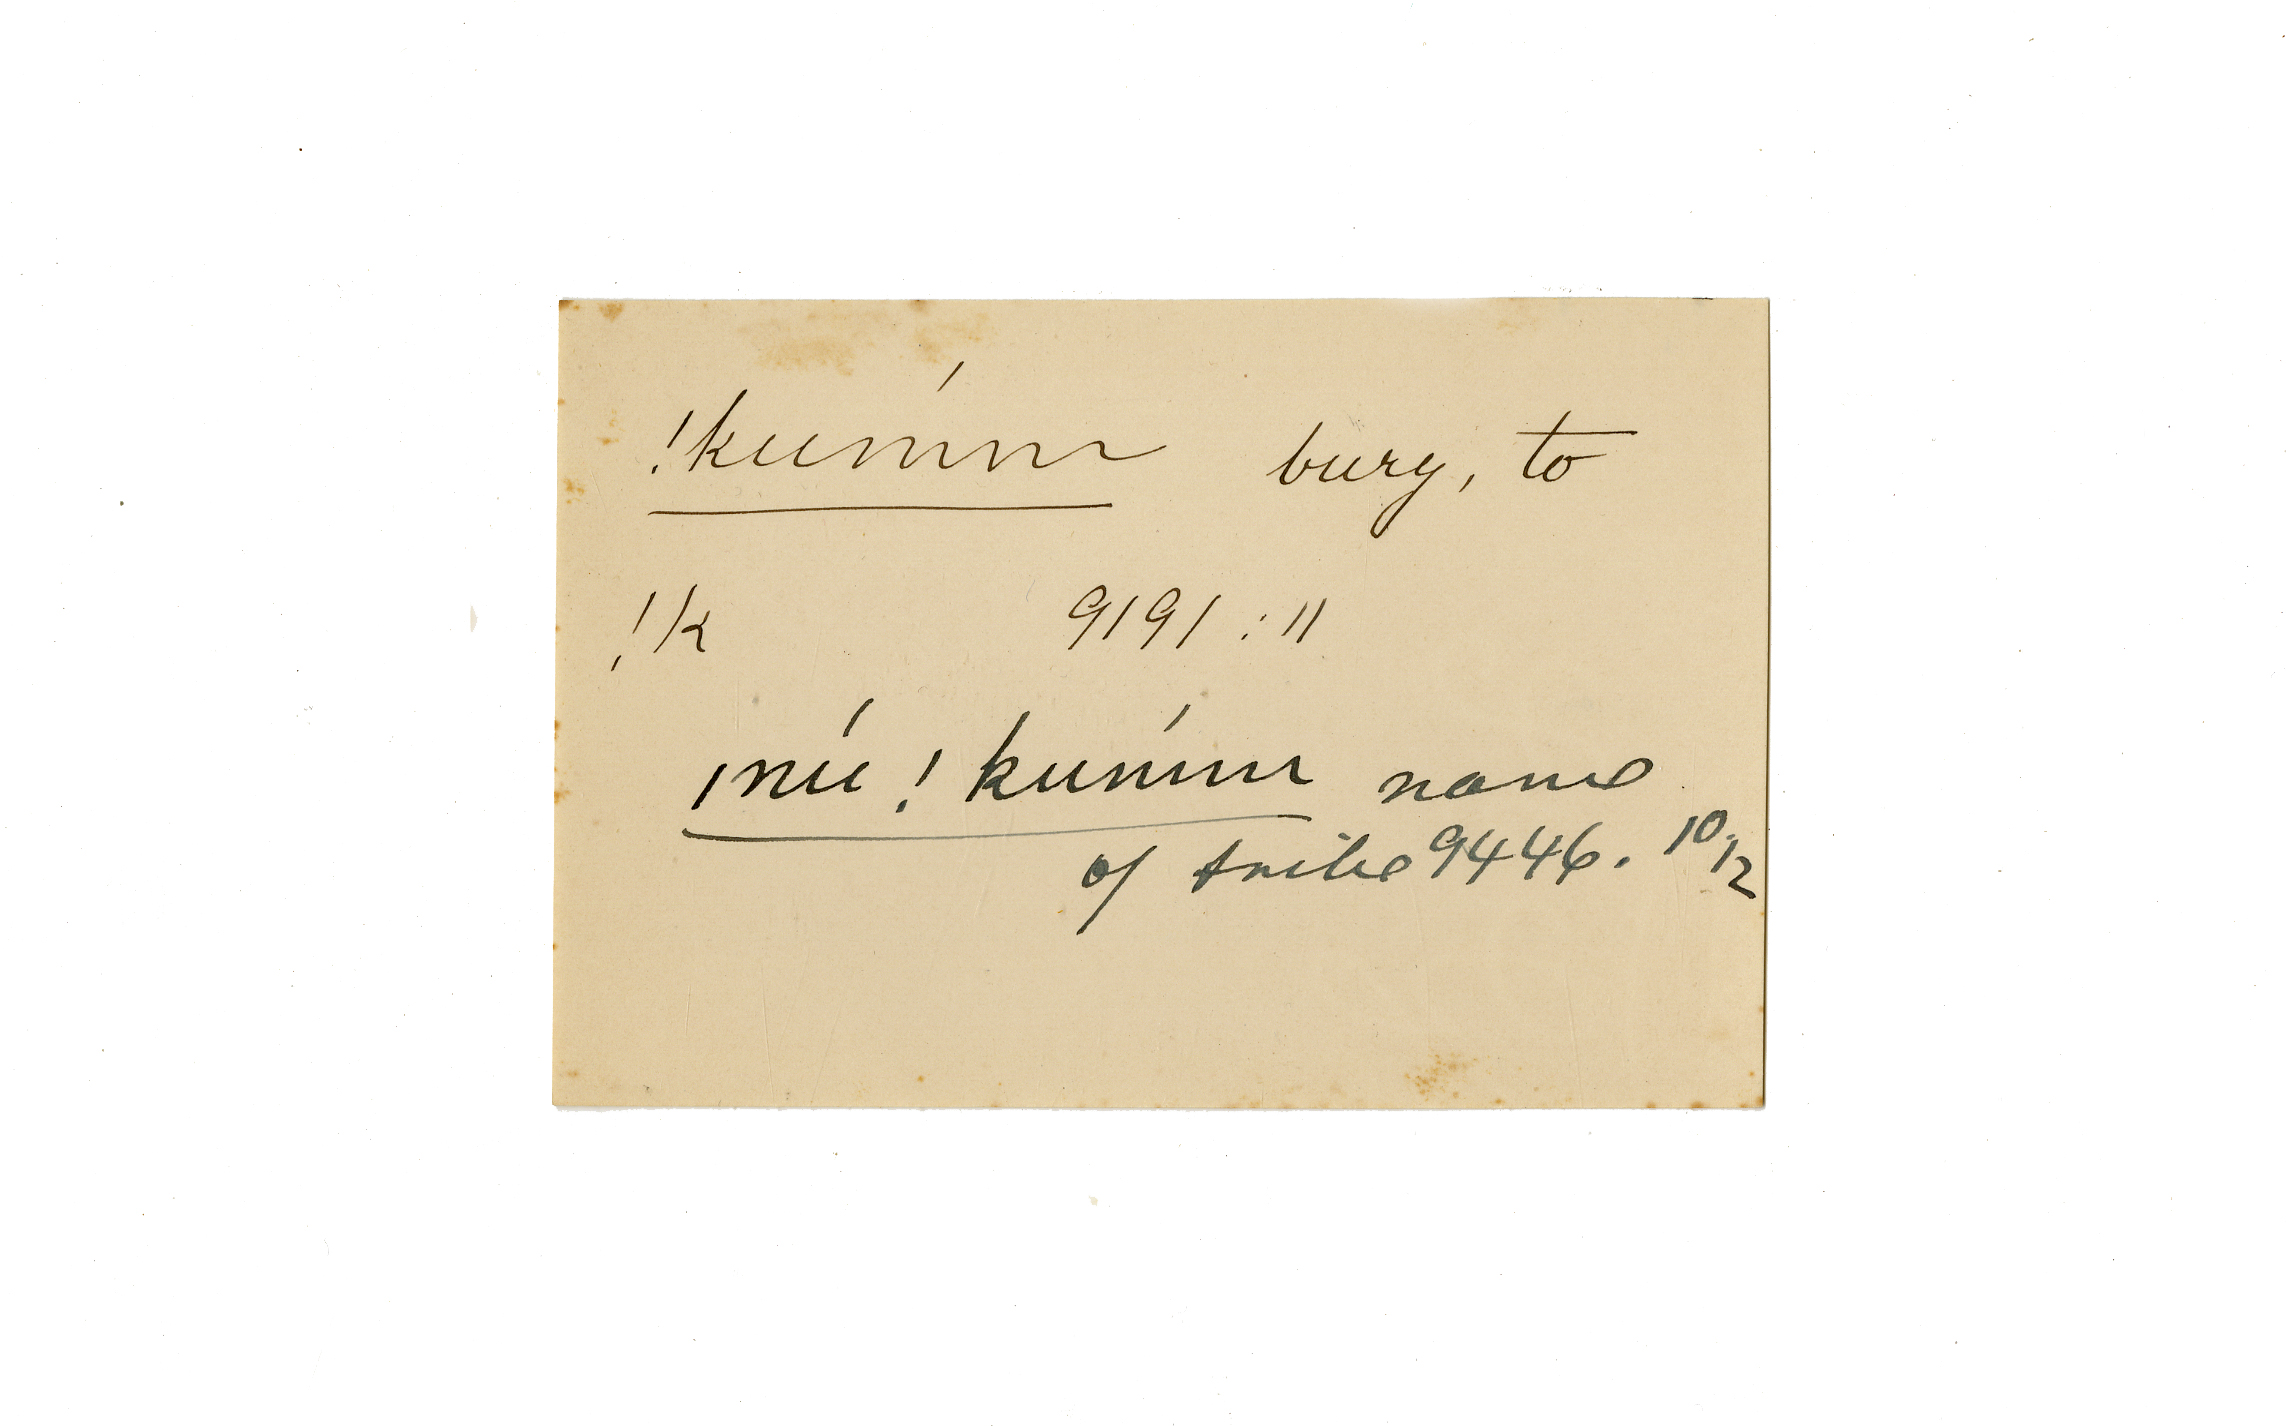 !kuḿm bury, to
!k 9191 : 11
ǀnú !kuḿm name
of tribe 9446. 10/12